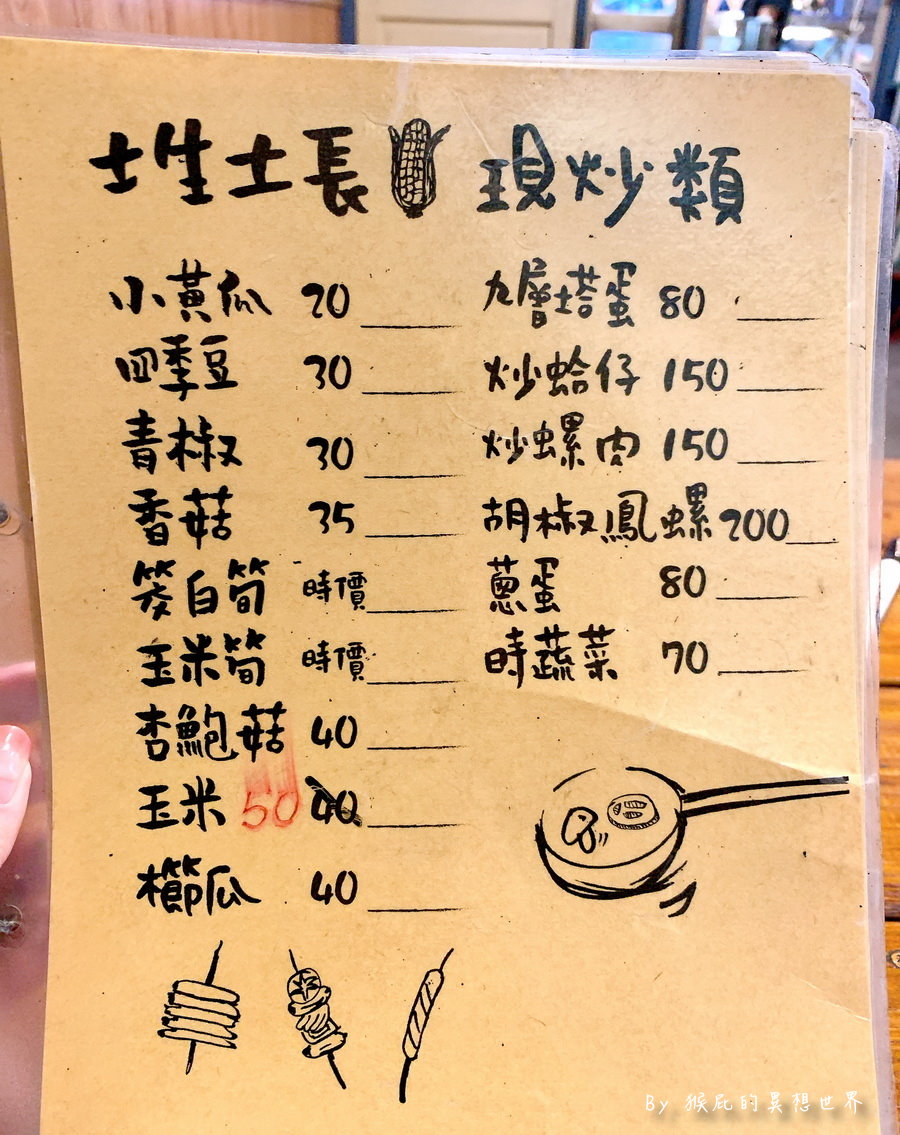 土生土長
小黃瓜 20
四季豆 30
青椒 30
香菇 35
筊白筍 時價
玉米筍 時價
杏鮑菇 40
玉米 50 40
櫛瓜 40
現炒類
九層塔蛋 80
炒蛤仔 150
炒螺肉 150
胡椒鳳螺 200
蔥蛋 80
時蔬菜 70
By 猴屁的異想世界